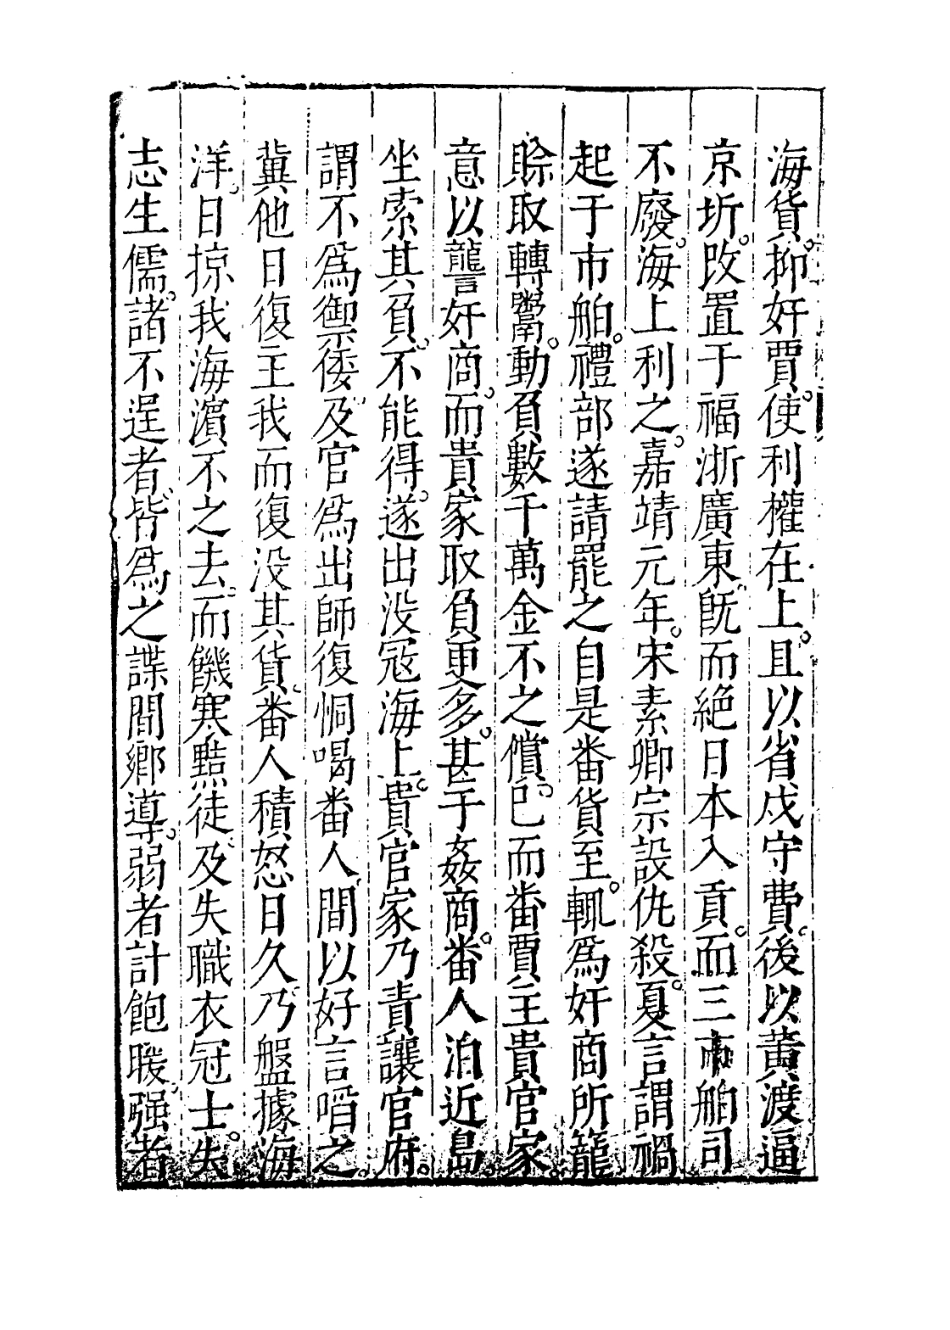 海貨。抑奸賈。使利權在上。且以省戍守費。後以黃渡逼
京圻。改置于福浙廣東。旣而絕日本入貢。而三市舶司
不廢。海上利之。嘉靖元年。宋素卿宗設仇殺。夏言謂禍
起于市舶。禮部遂請罷之自是番貨至。輒爲奸商所籠
賒取轉鬻。動負數千萬金不之償。已而番賈主貴官家。
意以讋奸商。而貴家取負更多。甚于姦商。番人泊近島。
坐索其負。不能得。遂出没冦海上。貴官家乃責讓官府。
謂不爲御倭。及官爲出師復恫喝番人。間以好言啗之。
冀他日復主我而復没其貨。番人積怒日久。乃盤據海
洋。日掠我海濱不之去。而饑寒黠徒。及失職衣冠士。失
志生儒。諸不逞者。皆爲之諜間鄉導。弱者計飽暖。强者